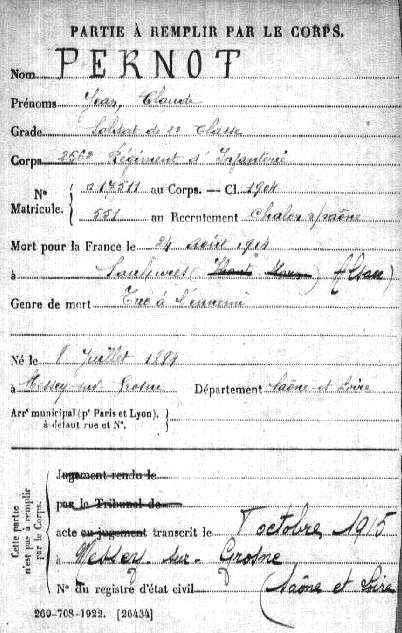 PARTIE À REMPLIR PAR LE CORPS.
Nom PERNOT
Prénoms Jean, Claude
Grade Soldat de 2e classe
Corps 256e Régiment d'Infanterie
N° Matricule. { a 17511 au Corps. — Cl. 1904
551 au Recrutement Chalon s/saône
Mort pour la France le 24 août 1914
à ( ) (Alsace)
Genre de mort Tué à l'ennemi
Né le 8 Juillet 1884
à Messey sur Grosne Département Saône-et-Loire
Arr' municipal (p' Paris et Lyon), à défaut rue et N°. }
Cette partie n'est pas à remplir par le Corps.
Jugement rendu le
par le Tribunal de
acte ou jugement transcrit le 8 octobre 1915
à Messey-sur-Grosne
N° du registre d'état civil (Saône et Loire
269-708-1922. [26434]